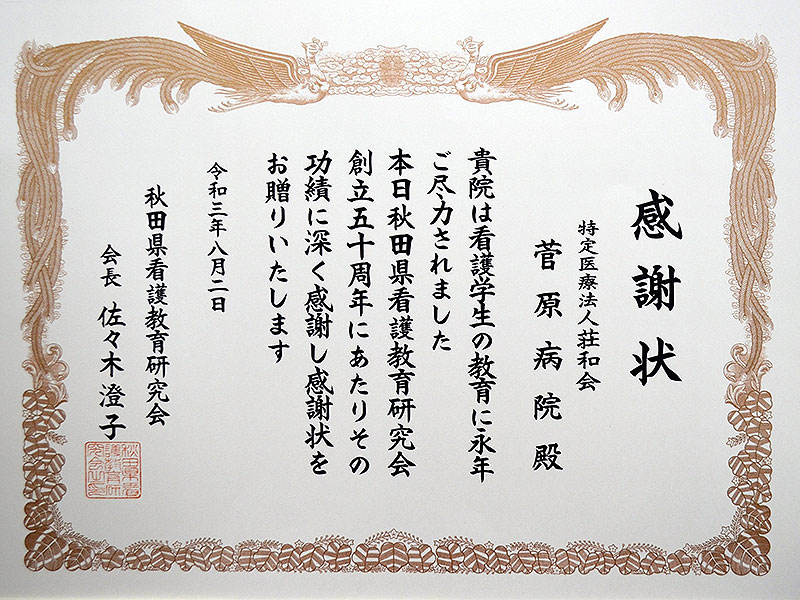 感謝状
特定医療法人荘和会
菅原病院殿
貴院は看護学生の教育に永年
ご尽力されました
本日秋田県看護教育研究会
創立五十周年にあたりその
功績に深く感謝し感謝状を
お贈りいたします
令和三年八月二日
秋田県看護教育研究会
会長 佐々木澄子